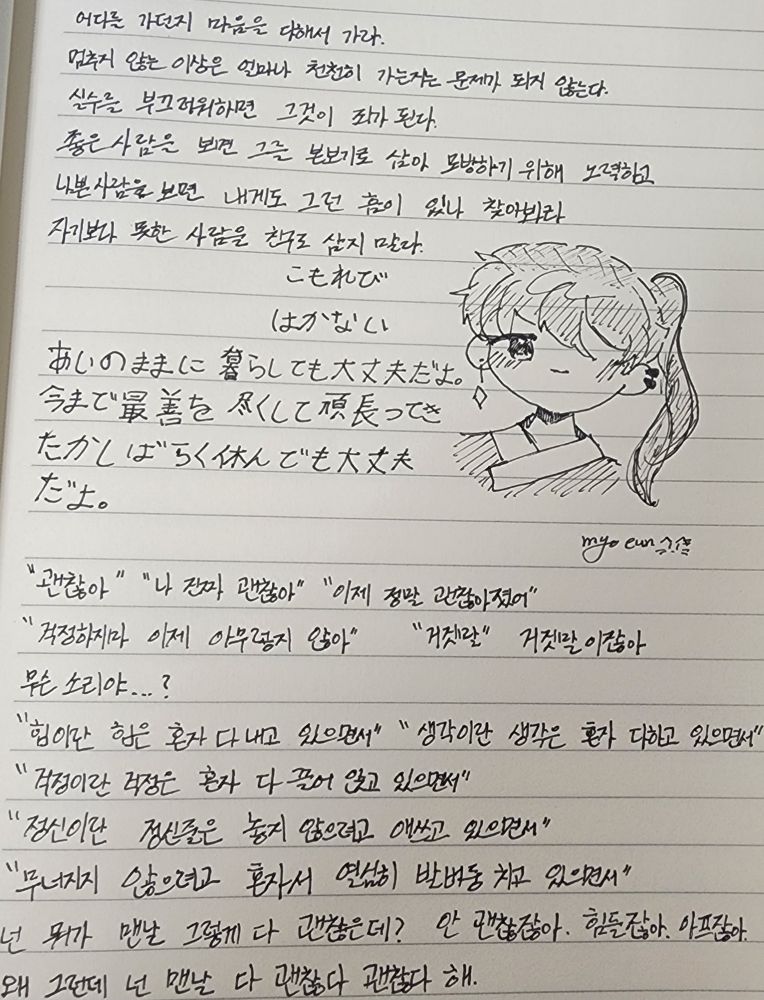 어디를 가던지 마음을 다해서 가라.
멈추지 않는 이상은 얼마나 천천히 가는지는 문제가 되지 않는다.
실수를 부끄러워하면 그것이 죄가 된다.
좋은 사람을 보면 그를 본보기로 삼아 모방하기 위해 노력하고
나쁜 사람을 보면 내게도 그런 흠이 있나 찾아봐라
자기보다 못한 사람을 친구로 삼지 말라.
こもれび
はかない
あいのままに 暮らしても大丈夫だよ。
今まで最善を 尽くして頑張ってき
たかしばらく休んでも大丈夫
だよ。
myo eun
"괜찮아" "나 진짜 괜찮아" "이제 정말 괜찮아졌어"
"걱정하지마 이제 아무렇지 않아" "거짓말" 거짓말이잖아
무슨 소리야...?
"힘이란 힘은 혼자 다 내고 있으면서" "생각이란 생각은 혼자 다하고 있으면서"
"걱정이란 걱정은 혼자 다 끌어 안고 있으면서"
"정신이란 정신줄은 놓지 않으려고 애쓰고 있으면서"
"무너지지 않으려고 혼자서 열심히 발버둥 치고 있으면서"
넌 뭐가 맨날 그렇게 다 괜찮은데? 안 괜찮잖아. 힘들잖아. 아프잖아.
왜 그런데 넌 맨날 다 괜찮다 괜찮다 해.